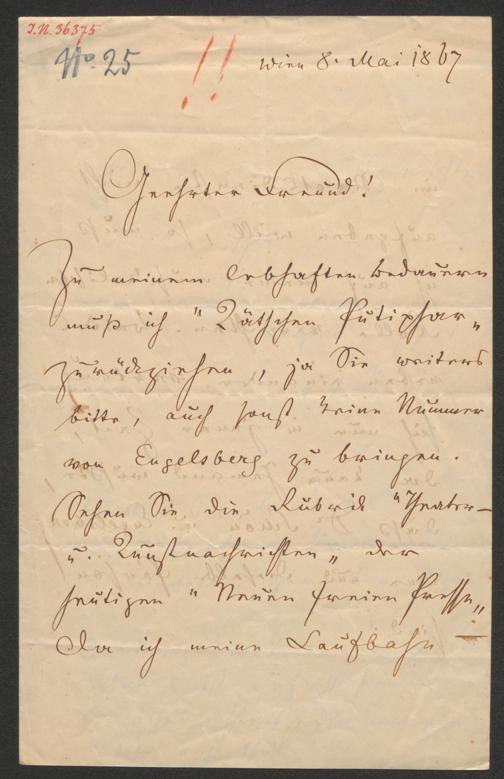 I.N. 36375
No. 25
!!
Wien 8. Mai 1867
Geehrter Freund!
Zu meinem lebhaften Bedauern
muß ich "Käthchen Putiphar"
zurückziehen, ja Sie weiters
bitte, auch sonst keine Nummer
von Engelsberg zu bringen.
Sehen Sie die Rubrik "Theater-
u. Kunstnachrichten" der
heutigen "Neuen freien Presse"
Da ich meine Laufbahn